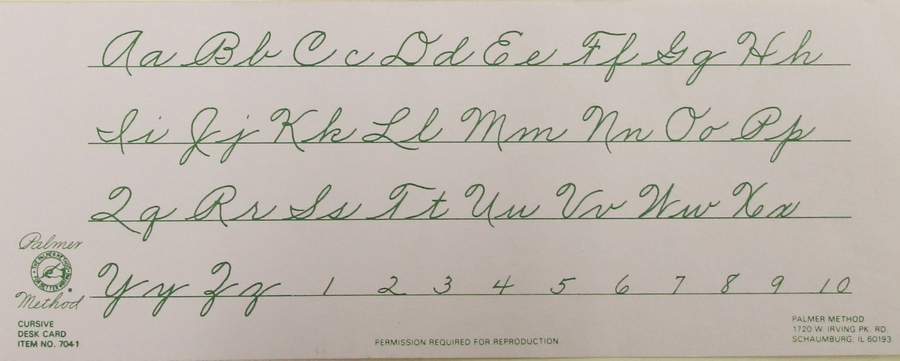 Aa Bb Cc Dd Ee Ff Gg Hh
Ii Jj Kk Ll Mm Nn Oo Pp
Qq Rr Ss Tt Uu Vv Ww Xx
Yy Zz 1 2 3 4 5 6 7 8 9 10
Palmer
Method
CURSIVE
DESK CARD
ITEM NO. 7041
PERMISSION REQUIRED FOR REPRODUCTION
PALMER METHOD
1720 W. IRVING PK. RD.
SCHAUMBURG, IL 60193